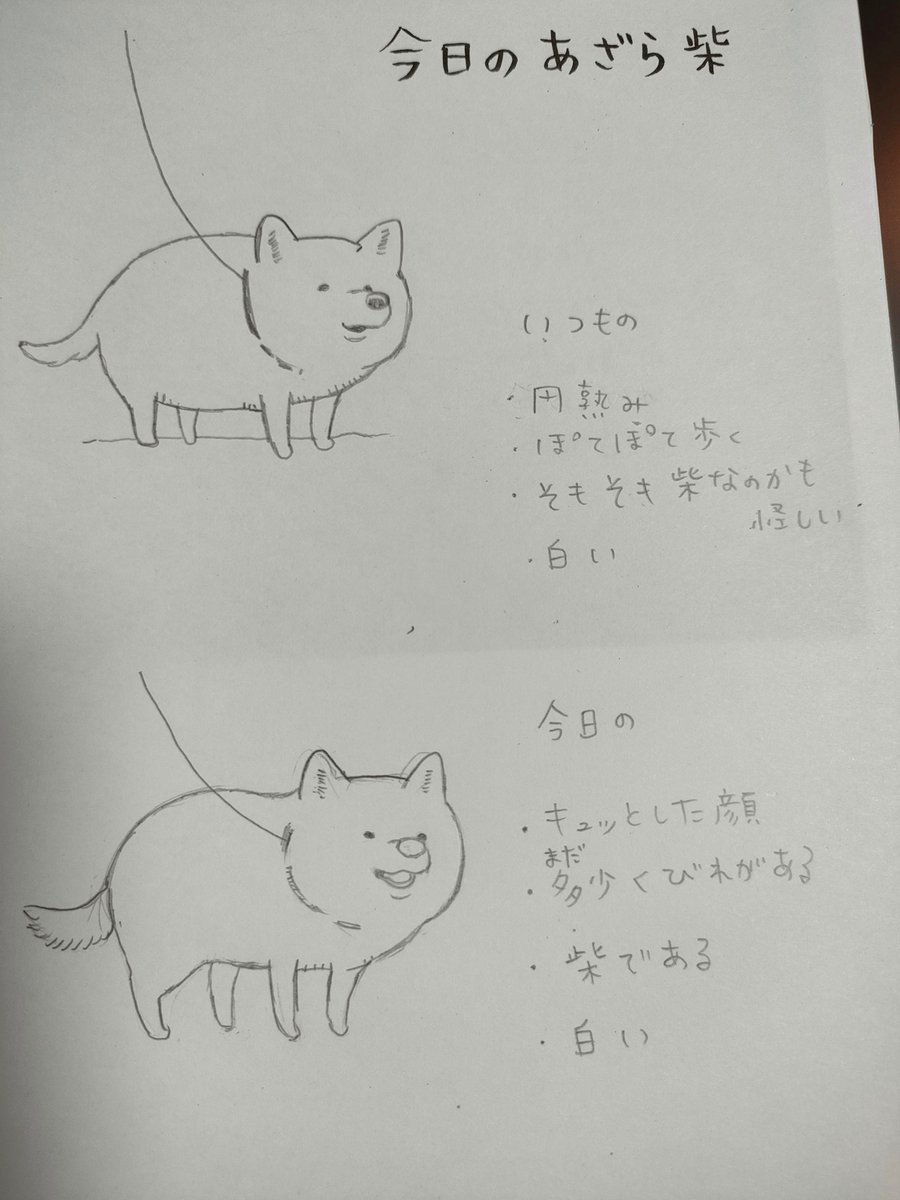 今日のあざら柴
いつもの
・円熟み
・ぽてぽて歩く
・そもそも柴なのかも
怪しい
・白い
今日の
・キュッとした顔
まだ
・多少くびれがある
・柴である
・白い